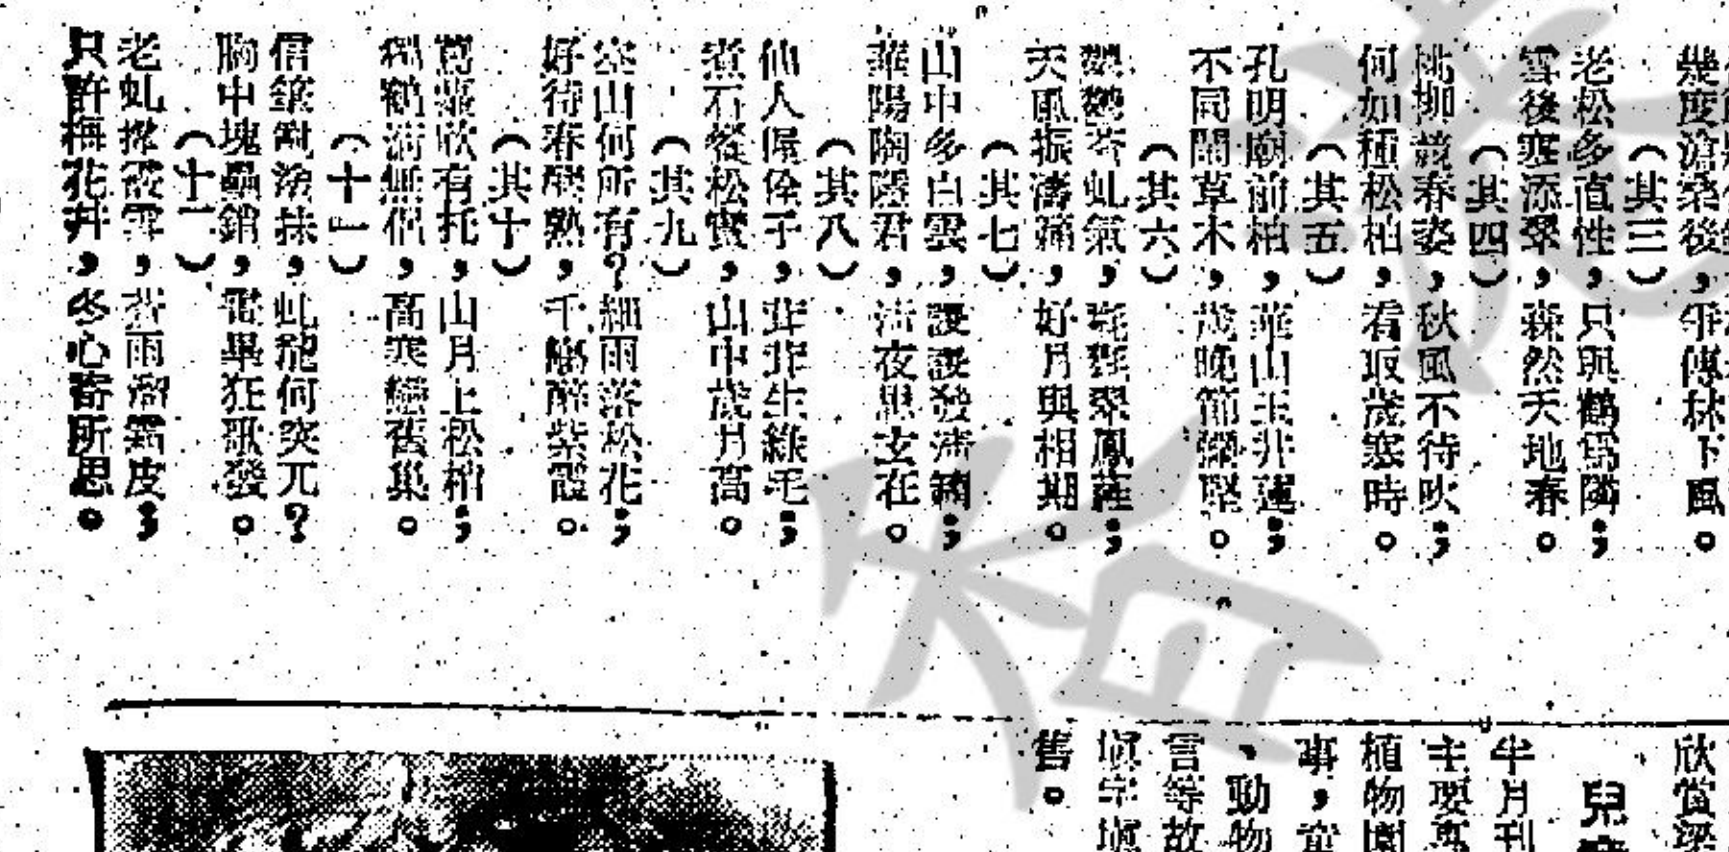 幾度滄桑後，爭傳林下風。
（其三）
老松多直性，只與鶴爲隣；
雪後寒添翠，森然天地春。
（其四）
桃柳競春姿，秋風不待吹；
何如種松柏，看取歲寒時。
（其五）
孔明廟前柏，華山玉井蓮；
不同閒草木，歲晚節彌堅。
（其六）
虬氣，翠鳳
天風振濤，好月與相期。
（其七）
山中多白雲，謖謖發清
華陽陶隱君，清夜思玄在。
（其八）
仙人偓佺子，茸茸生綠毛；
煮石餐松實，山中歲月高。
（其九）
空山何所有？細雨落松花；
好待春醪熟，千觴醉紫霞。
（其十）
蔦蘿欣有托，山月上松梢；
獨鶴清無侶，高寒戀舊巢。
（十一）
信筆爾塗抹，虬龍何突兀？
胸中塊壘銷，畫畢狂歌發。
（十二）
老虬拏雲，蒼雨溜霜皮；
只許梅花幷，冬心寄所思。
欣賞梁
兒
半月刊
主要專
植物園
事，童
、動物
言等故
塡字塡
售。